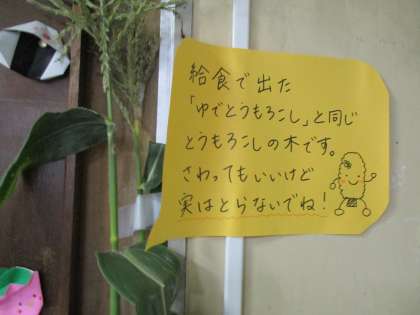 給食で出た
「ゆでとうもろこし」と同じ
とうもろこしの木です。
さわってもいいけど
実はとらないでね！